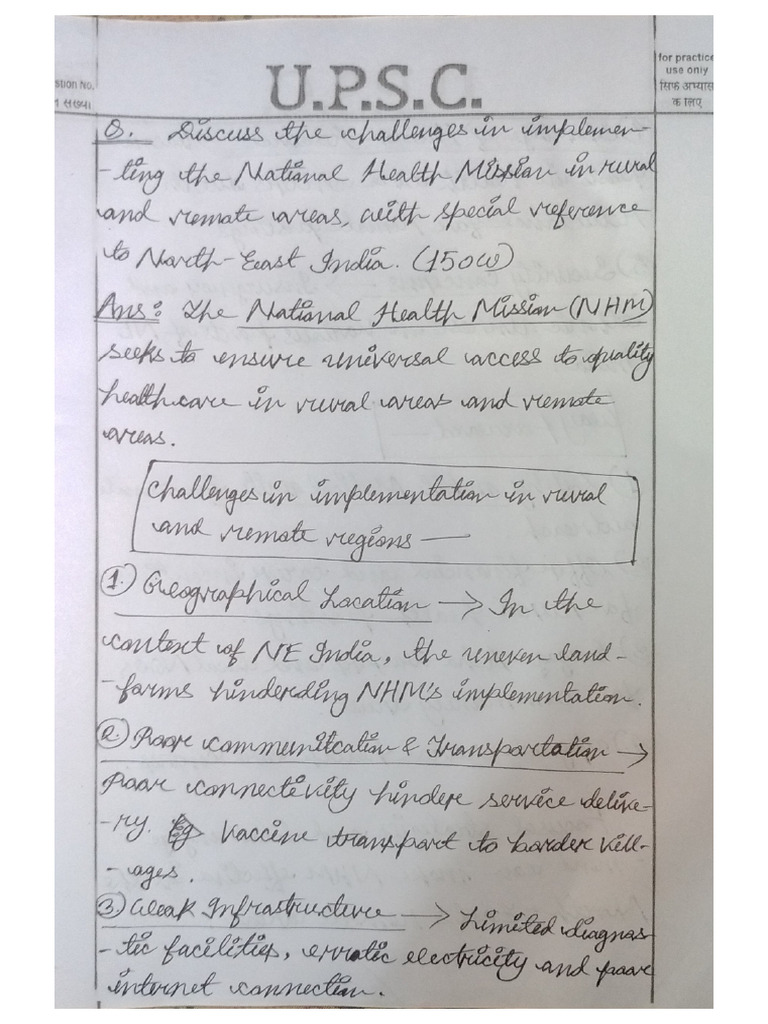 stion No.
ा संख्या
U.P.S.C.
for practice
use only
सिर्फ अभ्यास
के लिए
Q. Discuss the challenges in implemen-
-ting the National Health Mission in rural
and remote areas, with special reference
to North-East India. (150w)
Ans: The National Health Mission (NHM)
seeks to ensure universal access to quality
healthcare in rural areas and remote
areas.
Challenges in implementation in rural
and remote regions —
1. Geographical Location → In the
context of NE India, the uneven land-
-forms hinderding NHM's implementation.
2. Poor communitcation & Transportation →
Poor connectivity hinders service delive-
-ry. Eg Vaccine transport to border vill-
-ages.
3) Weak Infrastructure → Limited diagnos
-tic facilities, erratic electricity and poor
internet connection.